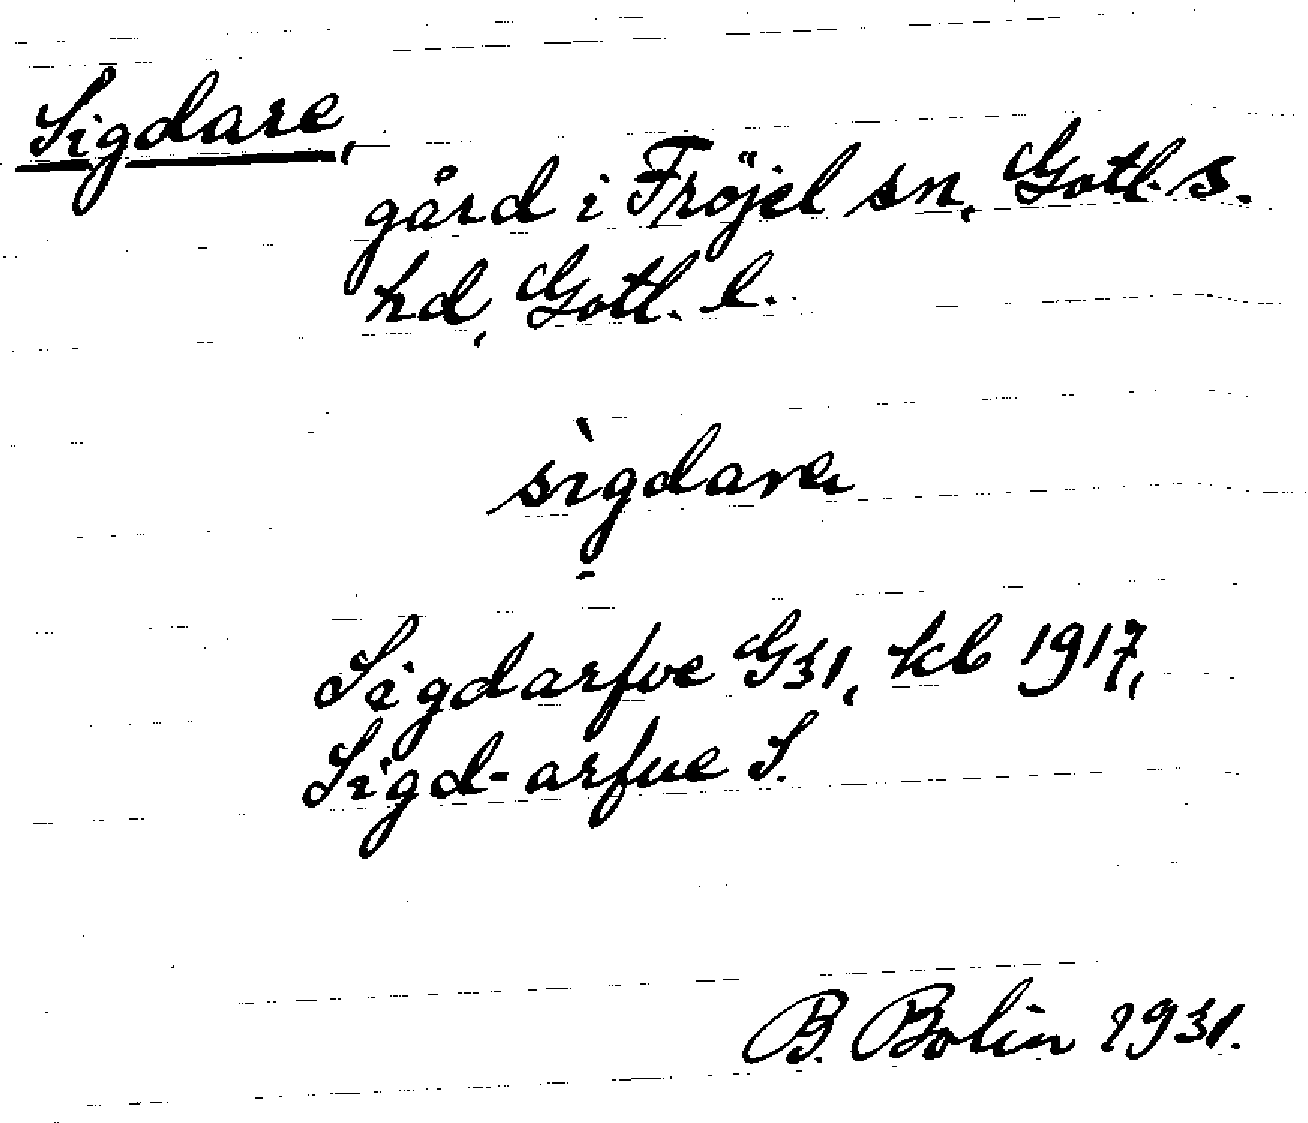 Sigdare,
gård i Fröjel sn, Gotl. s.
hd, Gotl. l.
sìgdarɐ
Sigdarfve G31, kb 1917,
Sigd-arfue S.
B. Bolin 1931.